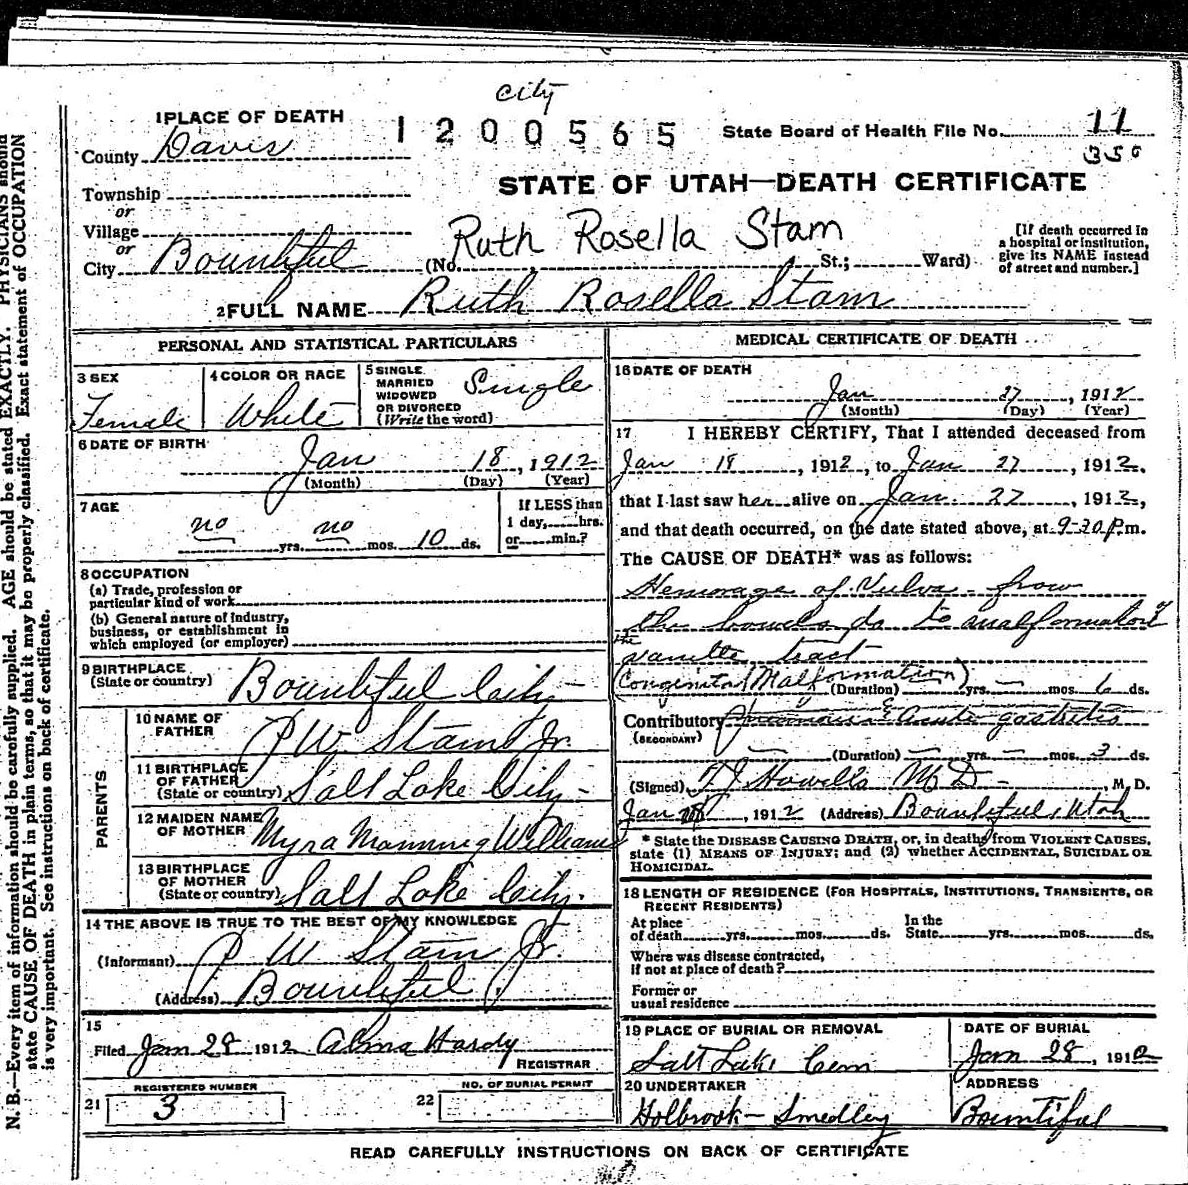 city
1 PLACE OF DEATH
1200565
State Board of Health File No. 11
350
County Davis
STATE OF UTAH—DEATH CERTIFICATE
Township
or
Village
or
City Bountiful
Ruth Rosella Stam
(No. St.; Ward)
[If death occurred in
a hospital or institution,
give its NAME instead
of street and number.]
2 FULL NAME Ruth Rosella Stam
PERSONAL AND STATISTICAL PARTICULARS
3 SEX
Female
4 COLOR OR RACE
White
5 SINGLE
MARRIED
WIDOWED
OR DIVORCED
(Write the word)
Single
6 DATE OF BIRTH
Jan 18, 1912
(Month) (Day) (Year)
7 AGE
no yrs. no mos. 10 ds.
If LESS than
1 day, hrs.
or min.?
8 OCCUPATION
(a) Trade, profession or
particular kind of work
(b) General nature of industry,
business, or establishment in
which employed (or employer)
9 BIRTHPLACE
(State or country)
Bountiful City
PARENTS
10 NAME OF
FATHER
P W Stam Jr.
11 BIRTHPLACE
OF FATHER
(State or country)
Salt Lake City
12 MAIDEN NAME
OF MOTHER
Myra Manning Williams
13 BIRTHPLACE
OF MOTHER
(State or country)
Salt Lake City.
14 THE ABOVE IS TRUE TO THE BEST OF MY KNOWLEDGE
(Informant) P W Stam Jr.
(Address) Bountiful
15
Filed Jan 28 1912 Alma Hardy
REGISTRAR
REGISTERED NUMBER
21 3
NO. OF BURIAL PERMIT
22
MEDICAL CERTIFICATE OF DEATH
16 DATE OF DEATH
Jan 27, 1912
(Month) (Day) (Year)
17 I HEREBY CERTIFY, That I attended deceased from
Jan 18, 1912, to Jan 27, 1912,
that I last saw her alive on Jan. 27, 1912,
and that death occurred, on the date stated above, at 9-20 P.m.
The CAUSE OF DEATH* was as follows:
Hemorage of Vulva from
the bowels to malformation of
the tract
(Congenital Malformation)
(Duration) yrs. — mos. 6 ds.
Contributory & Acute gastritis
(SECONDARY)
— (Duration) — yrs. — mos. 3 ds.
(Signed) T J Howells M D — M. D.
Jan 1912 (Address) Bountiful, Utah
* State the DISEASE CAUSING DEATH, or, in deaths from VIOLENT CAUSES,
state (1) MEANS OF INJURY; and (2) whether ACCIDENTAL, SUICIDAL OR
HOMICIDAL.
18 LENGTH OF RESIDENCE (FOR HOSPITALS, INSTITUTIONS, TRANSIENTS, OR
RECENT RESIDENTS)
At place
of death yrs. mos. ds.
In the
State yrs. mos. ds.
Where was disease contracted,
if not at place of death?
Former or
usual residence
19 PLACE OF BURIAL OR REMOVAL
Salt Lake Cem
DATE OF BURIAL
Jan 28, 1912
20 UNDERTAKER
Holbrook — Smedley
ADDRESS
Bountiful
READ CAREFULLY INSTRUCTIONS ON BACK OF CERTIFICATE
N. B.—Every item of information should be carefully supplied. AGE should be stated EXACTLY. PHYSICIANS should
state CAUSE OF DEATH in plain terms, so that it may be properly classified. Exact statement of OCCUPATION
is very important. See instructions on back of certificate.